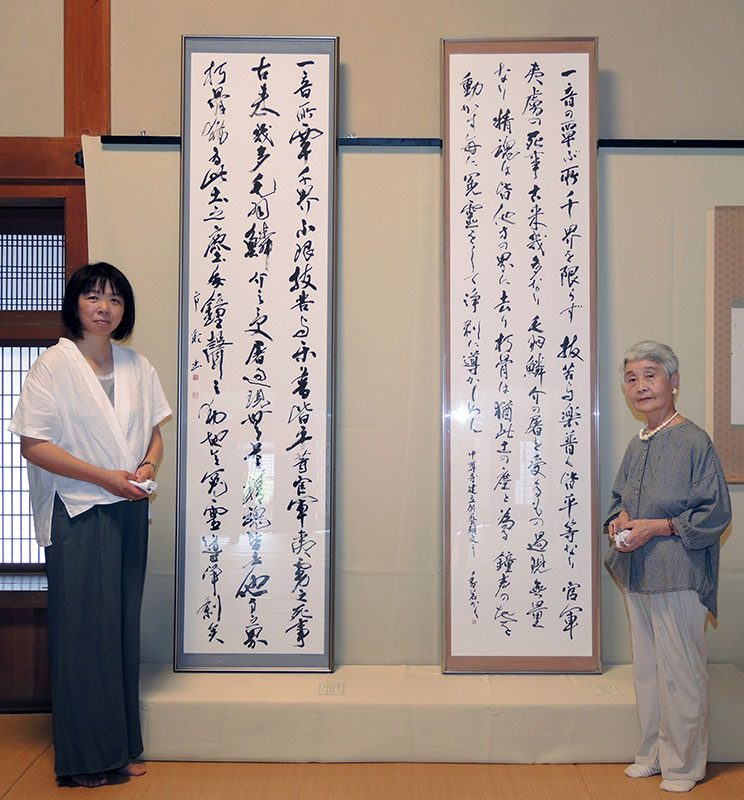 一音の覃ぶ所千界を限らず 抜苦与楽普く皆平等なり 官軍
夷虜の死事古来幾多なり 毛羽鱗介の屠を受るもの過現無量
なり 精魂は皆他方の界に去り朽骨は猶此土の塵と為る 鐘声の地を
動かす毎に冤霊をして浄刹に導かしめん 中尊寺建立供養願文より
一音所覃千界不限抜苦与楽普皆平等官軍夷虜之死事
古来幾多毛羽鱗介之受屠過現無量精魂皆去他方之界
朽骨猶為此土之塵毎鐘聲之動地令冤霊導浄刹矣